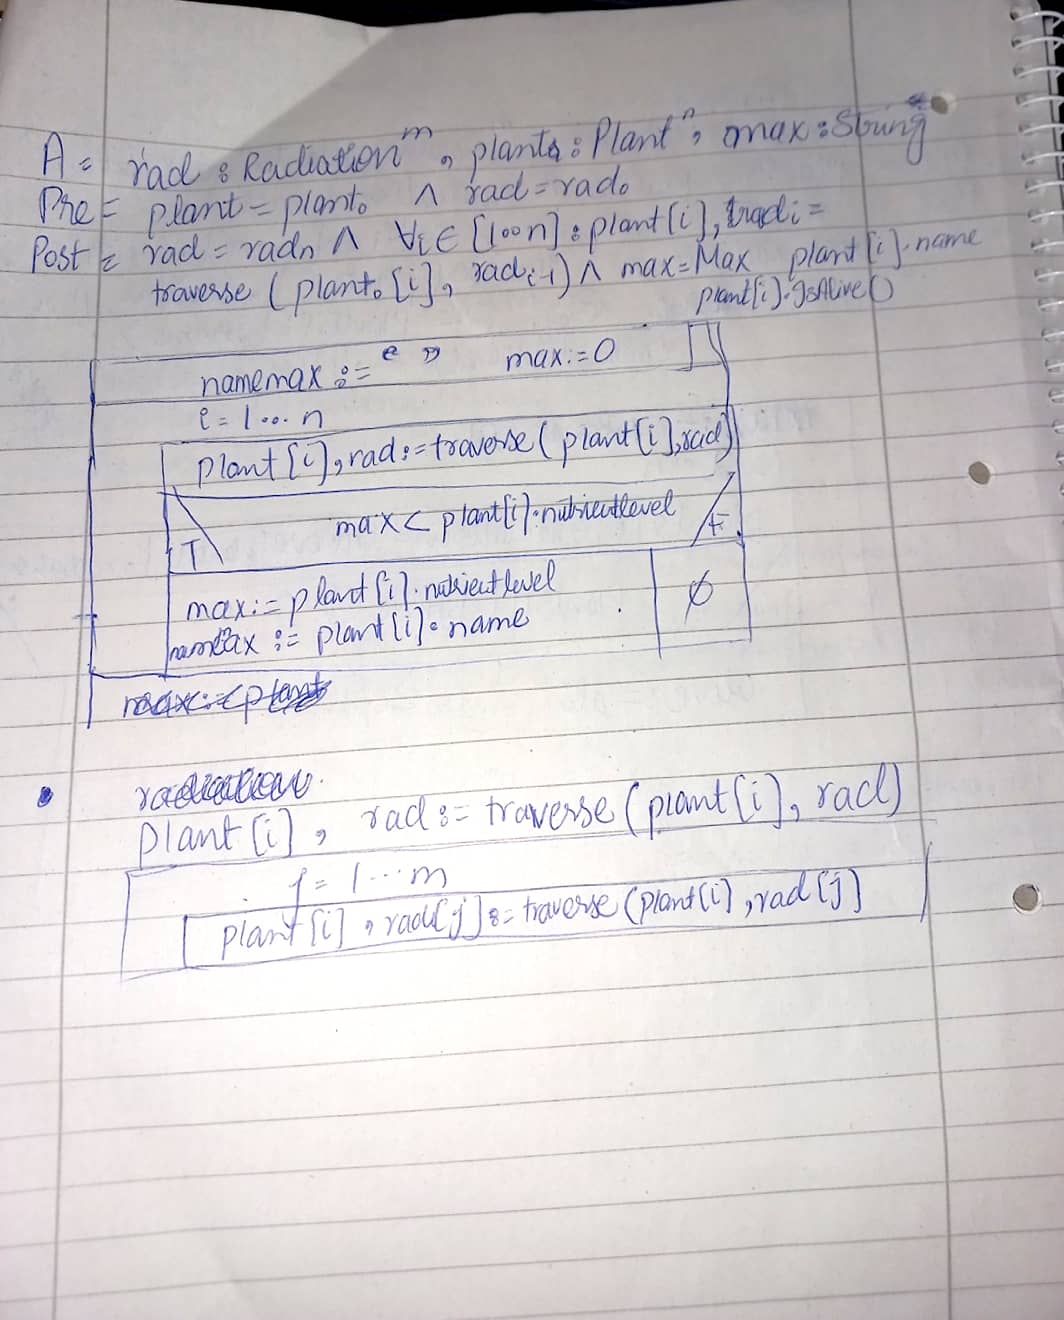 A = rad : Radiation^m , plants : Plant^n , max : String
Pre = plant = plant₀ ∧ rad = rad₀
Post = rad = radₙ ∧ ∀i ∈ [1..n] : plant[i], radᵢ =
traverse (plant₀[i], radᵢ₋₁) ∧ max = Max plant[i].name
plant[i].IsAlive()
namemax := " " max := 0
i = 1 ... n
plant[i], rad := traverse (plant[i], rad)
max < plant[i].nutrientlevel
T F
max := plant[i].nutrientlevel
namemax := plant[i].name
Ø
plant[i], rad := traverse (plant[i], rad)
j = 1 ... m
plant[i], rad[j] := traverse (plant[i], rad[j]